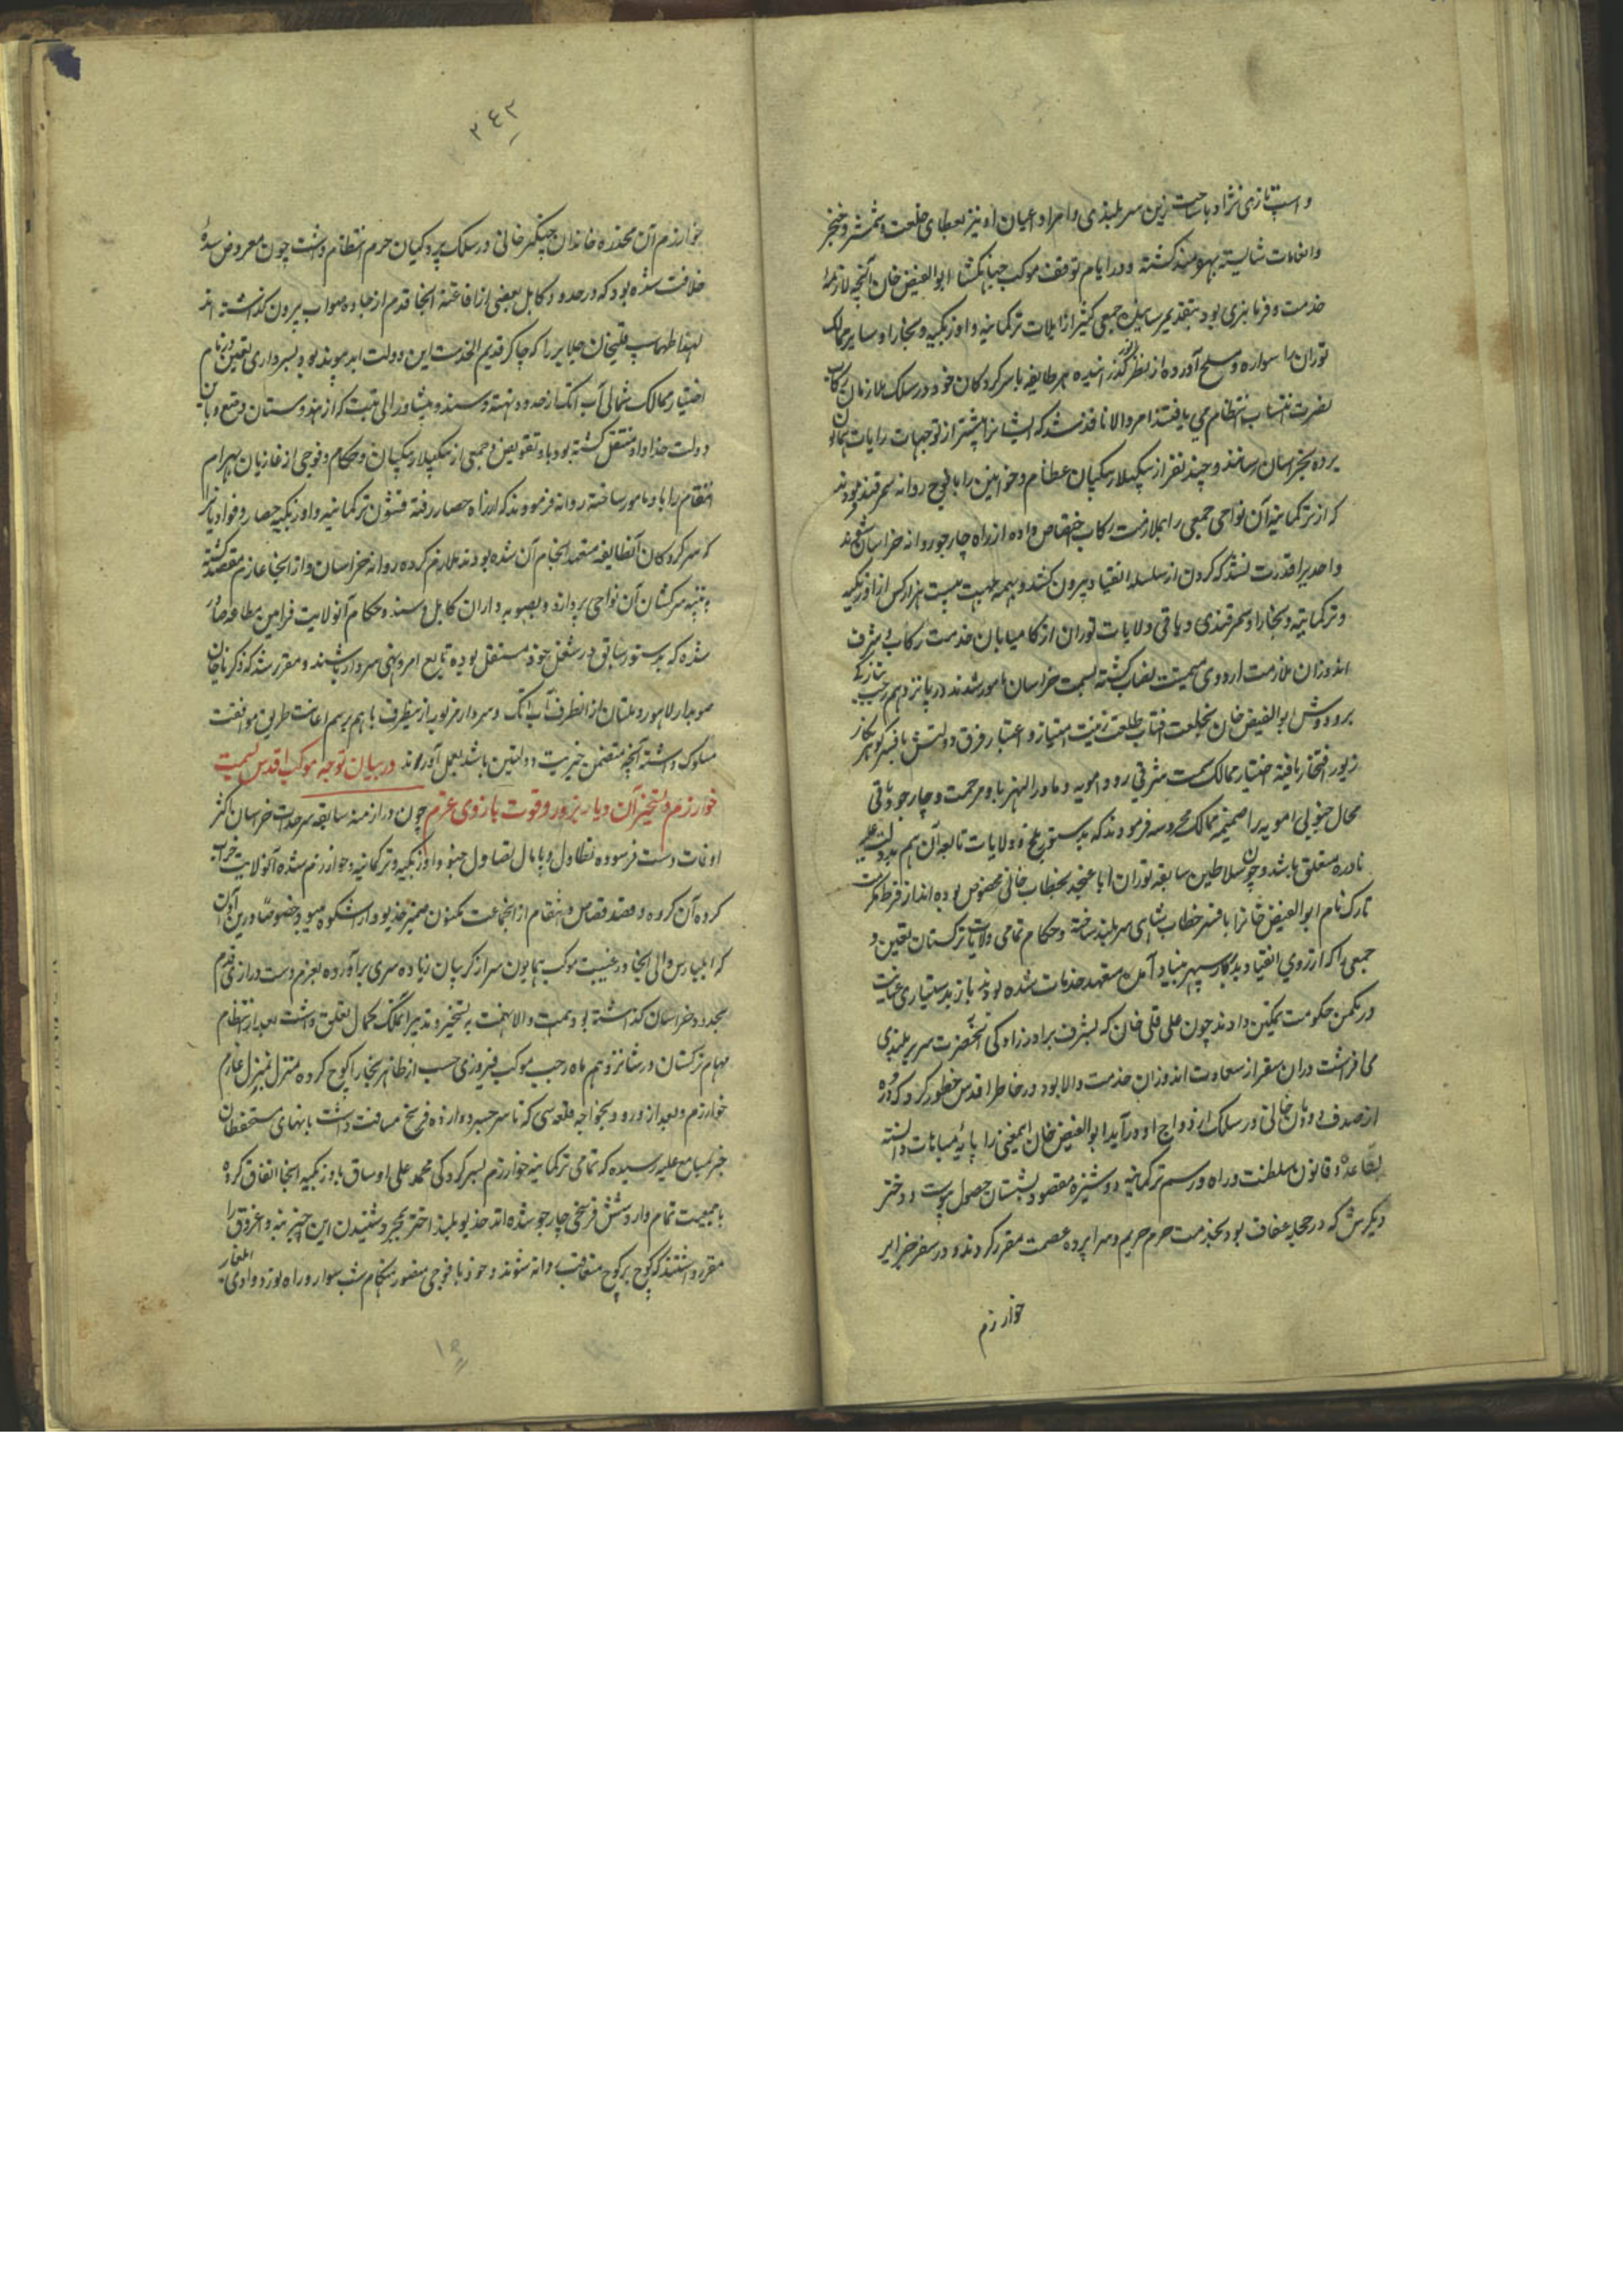 و اسب تازی نژاد با ساخت زین سربلندی و امرا و اعیان او نیز بعطای خلعت و شمشیر و خنجر
و انعامات شایسته بهره‌مند گشته و در ایام توقف موکب جهانگشا ابوالفیض خان آنچه لازمهٔ
خدمت و فرمانبری بود بتقدیم رسانیده جمعی کثیر از ایلات ترکمانیه و اوزبکیه و بخارا و سایر ممالک
توران را سواره و مسلح آورده از نظر انور گذرانیده هر طایفه با سرکردگان خود در سلک ملازمان رکاب
نصرت انتساب انتظام می یافتند امر والا نافذ شد که ایشانرا پیشتر از توجهات رایات همایون
برده بخراسان رسانند و چند نفر از بیگلربیگیان عظام و خوانین را با فوج روانه سمرقند فرمودند
که از ترکمانیه آن نواحی جمعی را بملازمت رکاب اختصاص داده از راه چارجو روانه خراسان شوند
و احدیرا قدرت نشد که گردن از سلسله انقیاد بیرون کشد و بهمه جهت بیست هزار کس از اوزبکیه
و ترکمانیه و بخارا و سمرقندی و باقی ولایات توران از کامیابان خدمت رکاب و شرف
اندوزان ملازمت اردوی میمنت نصاب گشته بسمت خراسان مامور شدند در پانزدهم رجب بتازگی
بر و دوش ابوالفیض خان بخلعت آفتاب طلعت زینت امتیاز و اعتبار و فرق دولتش بافسر گوهر نگار
زیور افتخار یافته اختیار ممالک سمت شرقی رود امویه و ماوراالنهر باو مرحمت و چارجو و باقی
محال جنوبی امویه را ضمیمه ممالک محروسه فرمودند که بدستور بلخ و ولایات تابعه آن هم بدولت علیه
نادره متعلق باشد و چون سلاطین سابقه توران ابا عن جد بخطاب خانی مخصوص بوده اند از فرط مکرمت
تارک نام ابوالفیض خانرا بافسر خطاب شاهی سربلند ساخته و حکام تمامی ولایات ترکستان تعیین و
جمعی را که از روی انقیاد بدرگاه سپهر بنیاد آمده متعهد خدمات شده بودند باز بدستیاری عنایت
در مکمن حکومت تمکین دادند چون علی قلی خان که بشرف برادرزادگی آنحضرت سر بربلندی
می افراشت در آن سفر از سعادت اندوزان خدمت والا بود در خاطر اقدس خطور کرد که دره
از صدف دودمان خانی در سلک ازدواج او درآید ابوالفیض خان ایمعنی را پایهٔ مباهات دانسته
بقاعده و قانون سلطنت و راه و رسم ترکمانیه دوشیزه مقصود بشبستان حصول پیوست و دختر
دیگرش که در حجله عفاف بود بخدمت حرم حریم و سراپرده عصمت مقرر کردند و در سفر خیر اثر
خوارزم
۲۴۳
خوارزم آن مخدره خاندان چنگیزخانی در سلک پردگیان حرم انتظام داشت چون معروض سدهٔ
خلافت شده بود که در حدود کابل بعضی از افاغنه آنجا قدم از جاده صواب بیرون گذاشته اند
لهذا طهماسب قلیخان جلایر را که چاکر قدیم الخدمت این دولت ابد پیوند بود بسرداری تعیین و زمام
اختیار ممالک شمالی آب اتک از حدود تهته و سند و پیشاور الی تبت که از هندوستان وضع و باین
دولت خداداد منتقل گشته بود باو تفویض و جمعی از بیگلربیگیان و حکام و فوجی از غازیان بهرام
انتقام را با او مامور ساخته روانه فرمودند که از راه حصار رفته قشون ترکمانیه و اوزبکیه حصار و قوادیانرا
که سرکردگان آنطایفه متعهد انجام آن شده بودند ملازم کرده روانه خراسان و از آنجا عازم مقصد گشته
به تنبیه سرکشان آن نواحی پردازد و بصوبه داران کابل و سند و حکام آنولایت فرامین مطاعه صادر
شده که بدستور سابق در شغل خود مستقل بوده تابع امر و نهی سردار باشند و مقرر شد که زکریا خان
صوبدار لاهور و ملتان از انطرف آب اتک و سردار مزبور ازینطرف با هم برسم اعانت طریق موافقت
مسلوک داشته آنچه متضمن خیریت دولتین باشد بعمل آورند در بیان توجه موکب اقدس بسمت
خوارزم و تسخیر آن دیار بزور و قوت بازوی عزم چون در ازمنه سابقه سرحدات خراسان اکثر
اوقات دست فرسوده تطاول و پامال تصاول جنود اوزبکیه و ترکمانیه خوارزم شده آنولایت خراب
کرده آن گروه و قصد قصاص و انتقام از آنجماعت مکنون ضمیر خدیو دارا شکوه میبود خصوصاً درین اوان
که ایلبارس والی آنجا در غیبت موکب همایون سر از گریبان زیاده سری برآورده بعزم دست درازی قدم
بحدود خراسان گذاشته بود همت والا نهمت به تسخیر و تدمیر آنملک بکمال تعلق داشت بعد از انتظام
مهام ترکستان در شانزدهم ماه رجب موکب فیروزی حسب از ظاهر بخارا کوچ کرده منزل بمنزل عازم
خوارزم و بعد از ورود بخواجه قلعه سی که تا سر جسر دوازده فرسخ مسافت داشت بانهای مستحفظان
جسر بمسامع علیه رسیده که تمامی ترکمانیه خوارزم بسرکردگی محمد علی اوساق با اوزبکیه آنجا اتفاق کرده
با جمعیت تمام وارد شش فرسخی چارجو شده اند خدیو بلند اختر بمجرد شنیدن این خبر بنه و اغروق را
مقرر داشتند که کوچ بر کوچ متعاقب روانه شوند و خود با فوجی منصور هنگام شب سوار و راه نورد وادی ایلغار